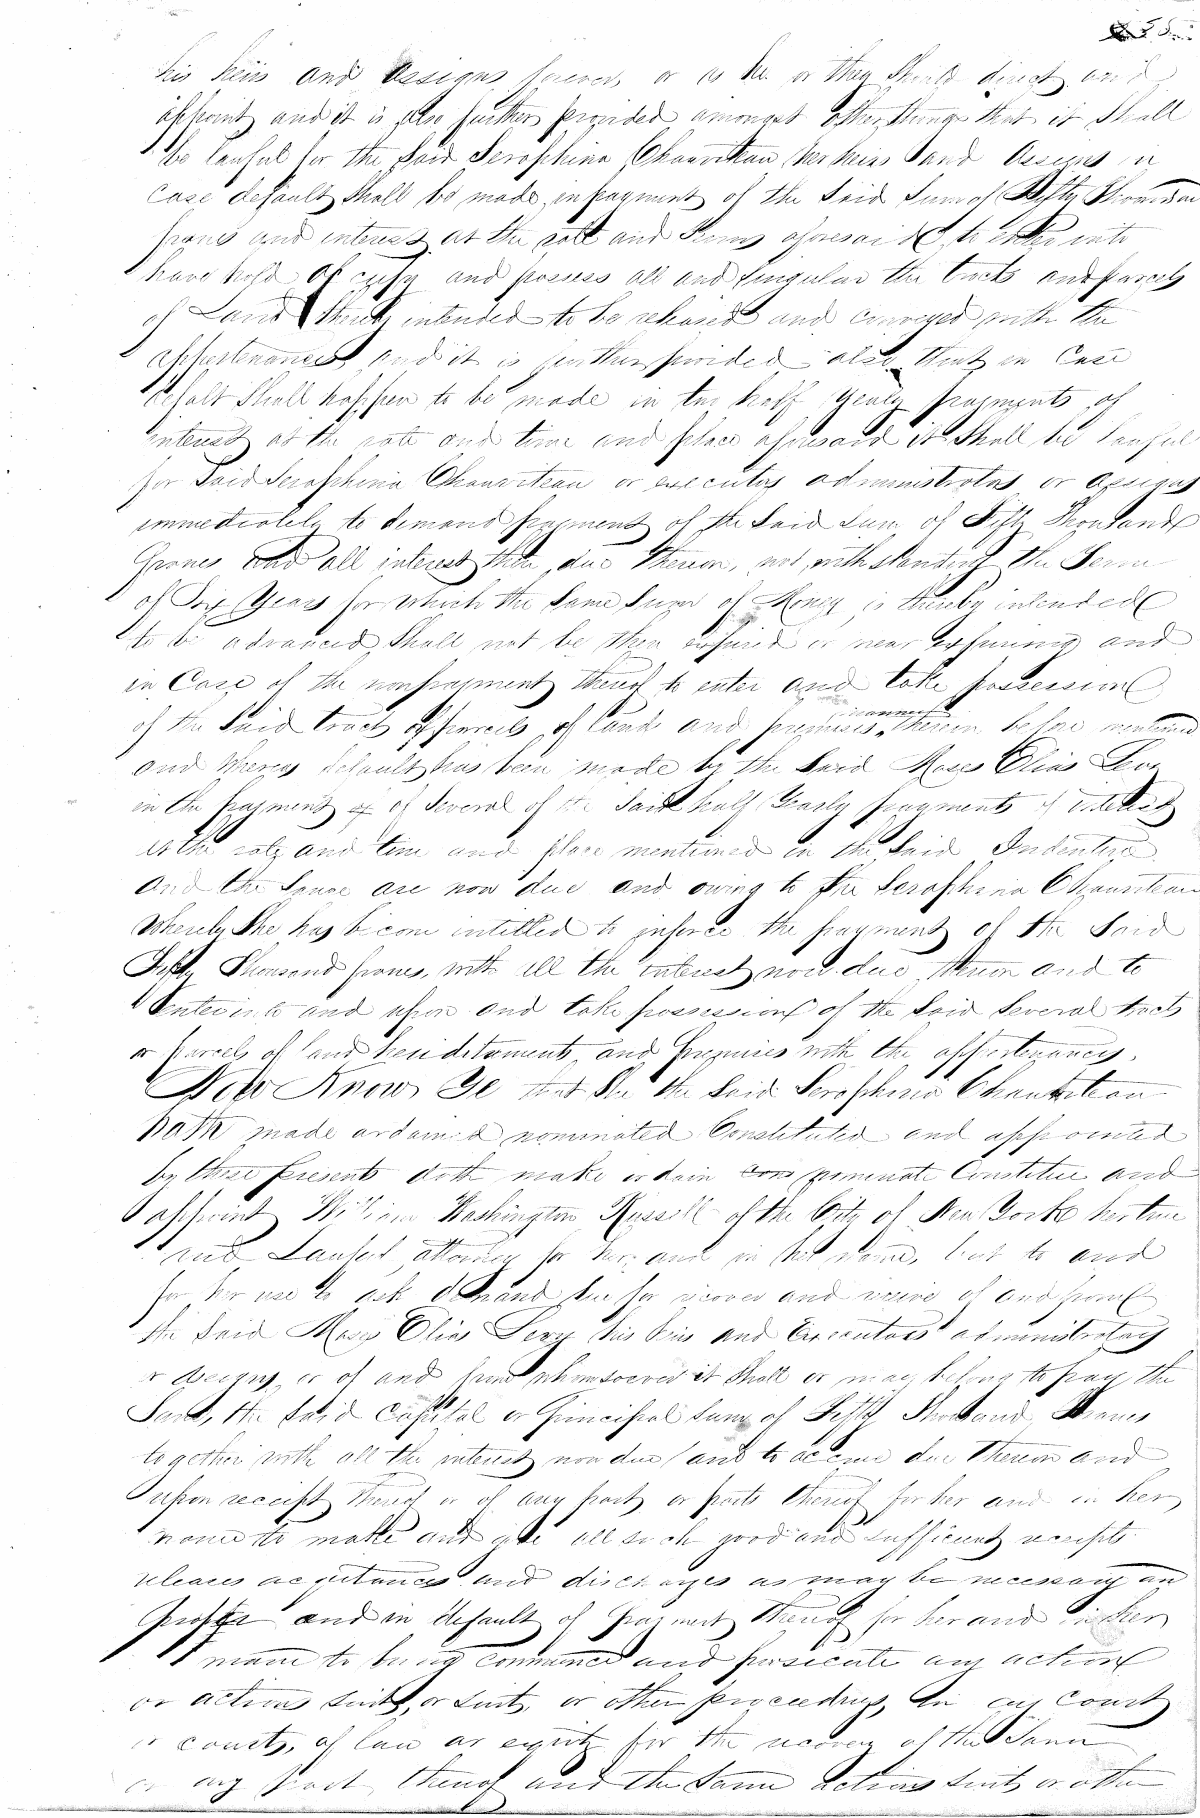 his heirs and assigns forever, or as he or they Should direct and
appoint and it is also further provided amongst other things that it Shall
be lawful for the Said Seraphina Chauviteau her heirs and Assigns in
case default Shall be made in payment of the Said Sum of Fifty Thousand
francs and interest at the rate and terms aforesaid to enter into
have hold occupy and possess all and Singular the tracts and parcels
of Land thereby intended to be released and conveyed with the
appertenances, and it is further provided also that in Case
default Shall happen to be made in the half yearly payments of
interest at the rate and time and place aforesaid it Shall be lawful
for Said Seraphina Chauviteau or executors administrators or assigns
immediately to demand payment of the Said Sum of Fifty Thousand
francs and all interest then due thereon, not withstanding the Term
of Six Years for which the Same Sum of Money is thereby intended
to be advanced Shall not be then expired or near expiring and
in Case of the nonpayment thereof to enter and take possession
of the Said tracts or parcels of Lands and premises in manner therein before mentioned
and whereas default has been made by the Said Moses Elias Levy
in the payment of of Several of the Said half Yearly payments of interest
at the rate and time and place mentioned in the Said Indenture
and the Same are now due and owing to the Seraphina Chauviteau
whereby She has become intitled to inforce the payment of the Said
Fifty Thousand francs, with all the interest now due thereon and to
enter into and upon and take possession of the Said Several tracts
or parcels of land hereditaments and premises with the appertenances.
Now Know Ye that She the Said Seraphina Chauviteau
hath made ordained nominated Constituted and appointed
by these presents doth make ordain con nominate Constitute and
appoint William Washington Russell of the City of New York her true
and Lawful attorney for her and in her name, but to and
for her use to ask demand sue for recover and receive of and from
the Said Moses Elias Levy his heirs and Executors administrators
or assigns, or of and from whomsoever it Shall or may belong to pay the
Same, the Said Capital or Principal Sum of Fifty Thousand Francs
together with all the interest now due and to accrue due Thereon and
upon receipt thereof or of any part or parts thereof for her and in her
name to make and give all such good and sufficient receipts
releases acquitances and discharges as may be necessary an
proper and in default of payment thereof for her and in her
name to bring commence and prosecute any action
or actions suit, or suits, or other proceedings in any court
or courts, of law or equity for the recovery of the Same
or any part thereof and the Same actions suits or other